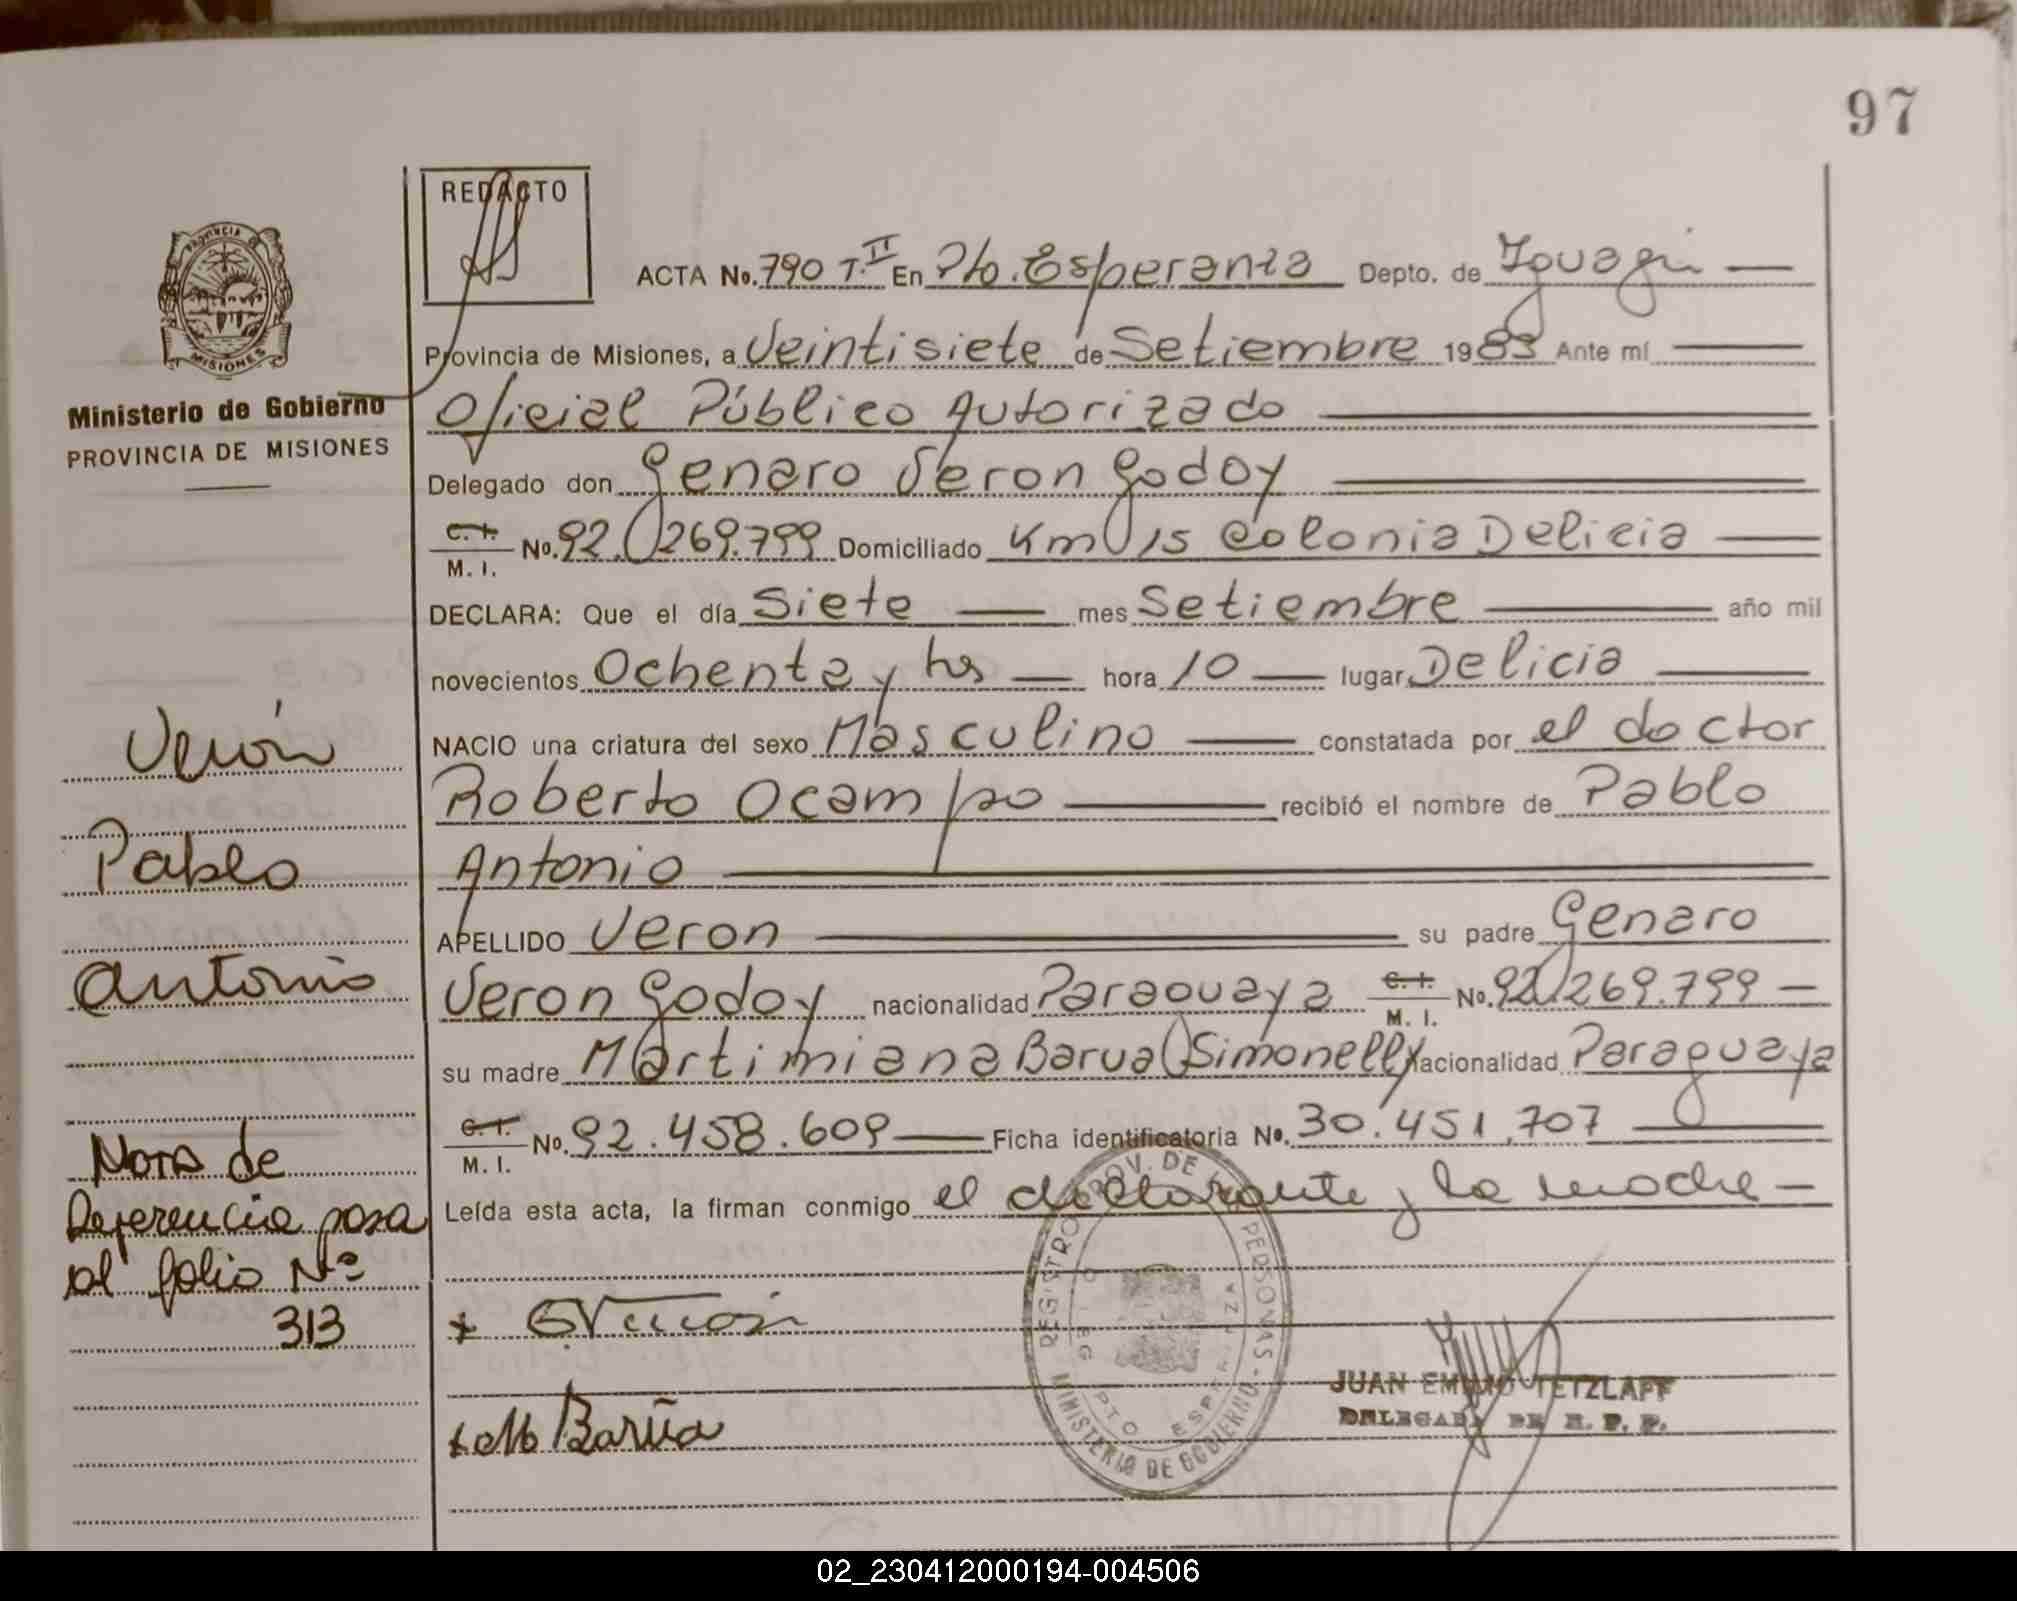 97
REDACTO
PROVINCIA DE
MISIONES
ACTA No. 790 T. II En Pto. Esperanza Depto. de Iguazú
Provincia de Misiones, a Veintisiete de Setiembre 1983 Ante mí
Ministerio de Gobierno
PROVINCIA DE MISIONES
Oficial Público Autorizado
Delegado don Genaro Veron Godoy
C. I. M. I. No. 92.269.799 Domiciliado Km 15 Colonia Delicia
DECLARA: Que el día Siete mes Setiembre año mil
novecientos Ochenta y tres hora 10 lugar Delicia
NACIO una criatura del sexo Masculino constatada por el doctor
Roberto Ocampo recibió el nombre de Pablo
Antonio
APELLIDO Veron su padre Genaro
Veron Godoy nacionalidad Paraguaya C. I. M. I. No. 92.269.799
su madre Martimiana Barua Simonelly nacionalidad Paraguaya
C. I. M. I. No. 92.458.609 Ficha identificatoria No. 30.451.707
Leída esta acta, la firman conmigo el declarante y la madre
Verón
Pablo
Antonio
Nota de
Referencia pasa
al folio Nº
313
REGISTRO PROV. DE LAS PERSONAS - MINISTERIO DE GOBIERNO
PTO ESPERANZA
JUAN EMILIO TETZLAFF
DELEGADO DE R. P. P.
02_230412000194-004506